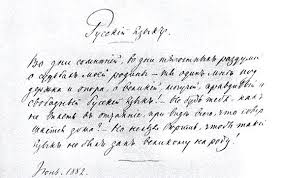 Русскій языкъ.
Во дни сомнѣній, во дни тягостныхъ раздумій
о судьбахъ моей родины – ты одинъ мнѣ под
держка и опора, о великій, могучій, правдивый и
свободный русскій языкъ! – Не будь тебя – какъ
не впасть въ отчаяніе, при видѣ всего, что совер
шается дома? – Но нельзя вѣрить, чтобы такой
языкъ не былъ данъ великому народу!
Іюнь, 1882.